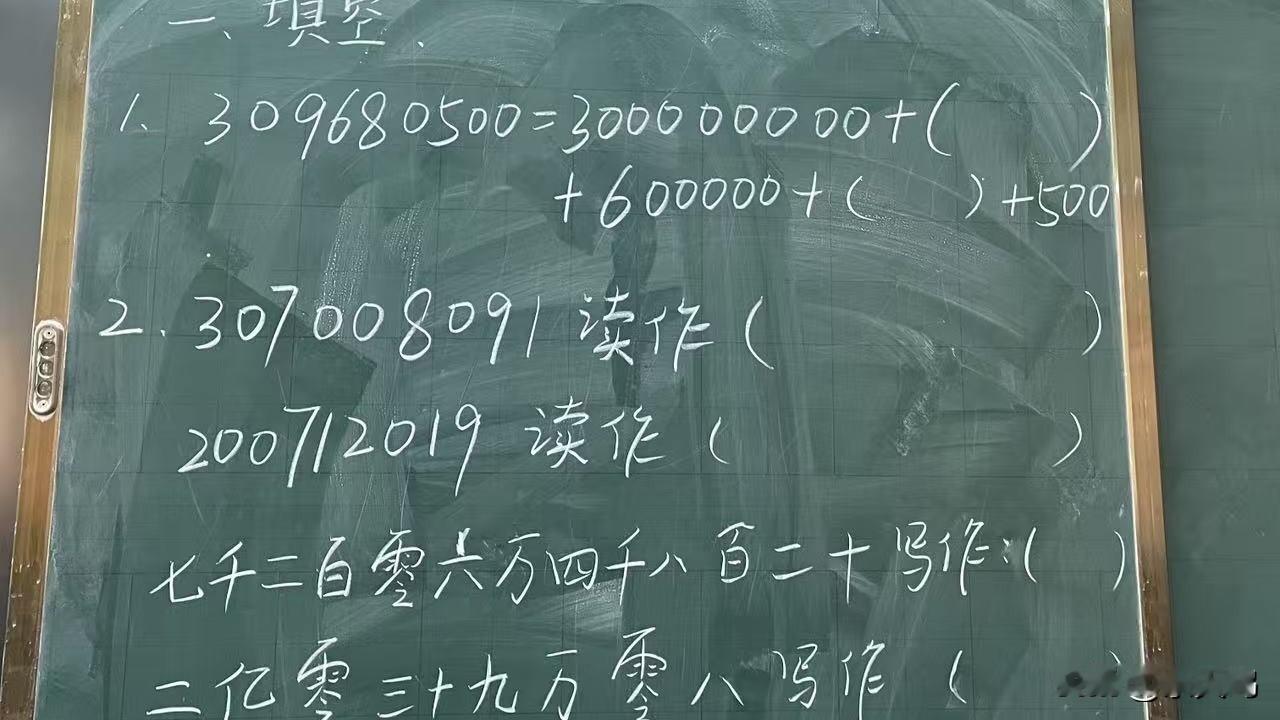 一、填空、
1、309680500=300000000+(    )
+600000+(    )+500
2.307008091读作(    )
200712019读作(    )
七千二百零六万四千八百二十写作:(    )
二亿零三十九万零八写作(    )